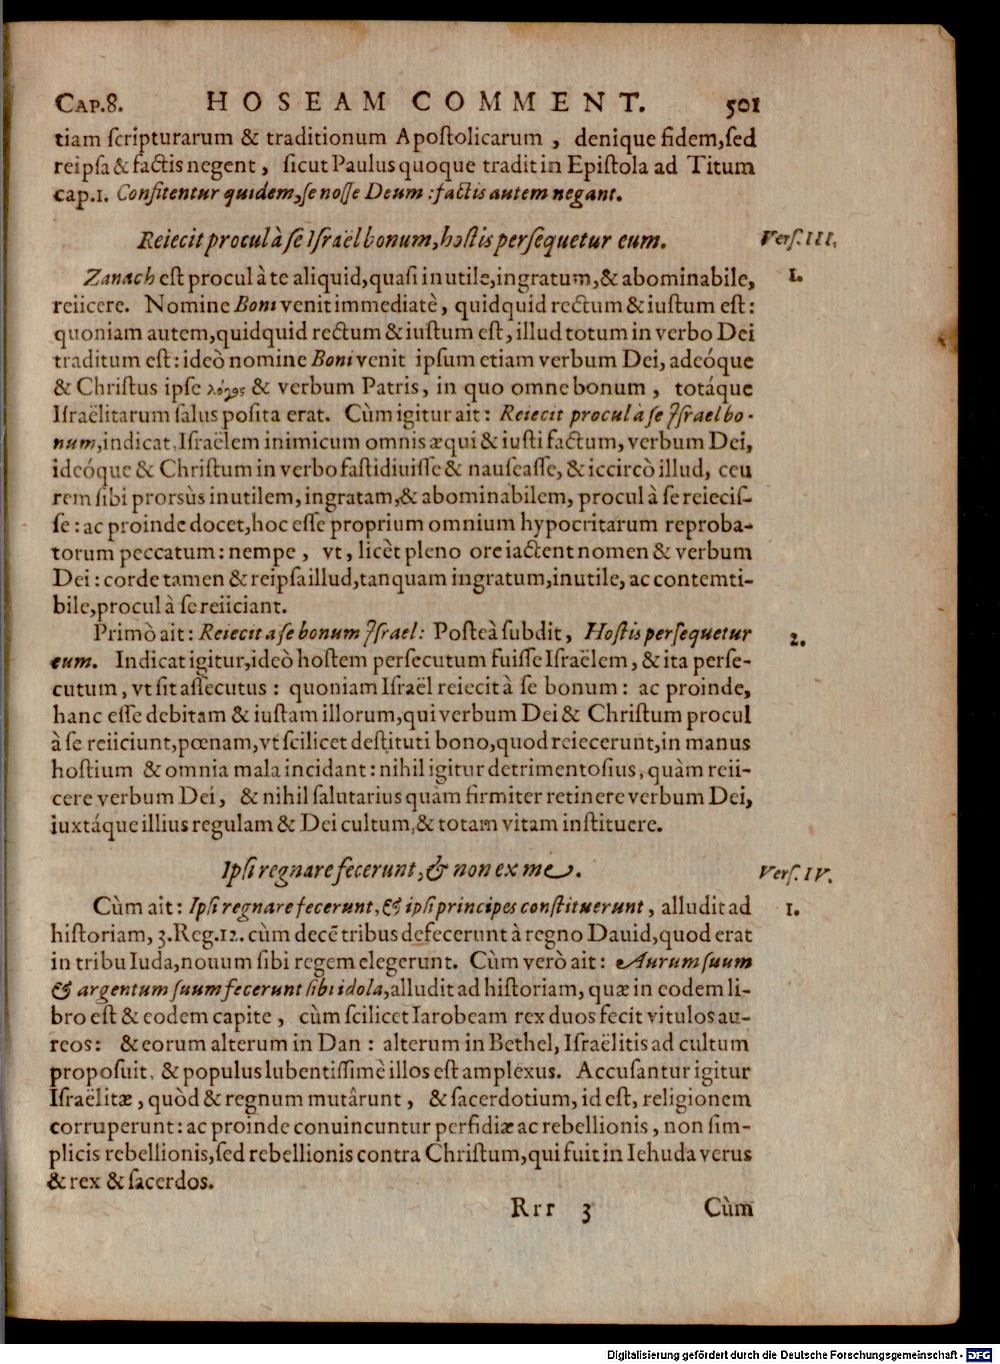 CAP.8. HOSEAM COMMENT. 501
tiam ſcripturarum & traditionum Apoſtolicarum, denique fidem, ſed
reipſa & factis negent, ſicut Paulus quoque tradit in Epiſtola ad Titum
cap.1. Confitentur quidem, ſe noſſe Deum: factis autem negant.
Reiecit procul à ſe Iſraël bonum, hoſtis perſequetur eum. Verſ. III.
Zanach eſt procul à te aliquid, quaſi inutile, ingratum, & abominabile, 1.
reiicere. Nomine Boni venit immediatè, quidquid rectum & iuſtum eſt:
quoniam autem, quidquid rectum & iuſtum eſt, illud totum in verbo Dei
traditum eſt: ideò nomine Boni venit ipſum etiam verbum Dei, adeóque
& Chriſtus ipſe λόγος & verbum Patris, in quo omne bonum, totáque
Iſraëlitarum ſalus poſita erat. Cùm igitur ait: Reiecit procul à ſe Iſrael bo-
num, indicat, Iſraëlem inimicum omnis æqui & iuſti factum, verbum Dei,
ideóque & Chriſtum in verbo faſtidiuiſſe & nauſeaſſe, & iccircò illud, ceu
rem ſibi prorsùs inutilem, ingratam, & abominabilem, procul à ſe reieciſ-
ſe: ac proinde docet, hoc eſſe proprium omnium hypocritarum reproba-
torum peccatum: nempe, vt, licèt pleno ore iactent nomen & verbum
Dei: corde tamen & reipſa illud, tanquam ingratum, inutile, ac contemti-
bile, procul à ſe reiiciant.
Primò ait: Reiecit a ſe bonum Iſrael: Poſteà ſubdit, Hoſtis perſequetur 2.
eum. Indicat igitur, ideò hoſtem perſecutum fuiſſe Iſraëlem, & ita perſe-
cutum, vt ſit aſſecutus: quoniam Iſraël reiecit à ſe bonum: ac proinde,
hanc eſſe debitam & iuſtam illorum, qui verbum Dei & Chriſtum procul
à ſe reiiciunt, pœnam, vt ſcilicet deſtituti bono, quod reiecerunt, in manus
hoſtium & omnia mala incidant: nihil igitur detrimentoſius, quàm reii-
cere verbum Dei, & nihil ſalutarius quàm firmiter retinere verbum Dei,
iuxtáque illius regulam & Dei cultum, & totam vitam inſtituere.
Ipſi regnare fecerunt, & non ex me. Verſ. IV.
Cùm ait: Ipſi regnare fecerunt, & ipſi principes conſtituerunt, alludit ad 1.
hiſtoriam, 3.Reg.12. cùm decē tribus defecerunt à regno Dauid, quod erat
in tribu Iuda, nouum ſibi regem elegerunt. Cùm verò ait: Aurum ſuum
& argentum ſuum fecerunt ſibi idola, alludit ad hiſtoriam, quæ in eodem li-
bro eſt & eodem capite, cùm ſcilicet Iarobeam rex duos fecit vitulos au-
reos: & eorum alterum in Dan: alterum in Bethel, Iſraëlitis ad cultum
propoſuit, & populus lubentiſſimè illos eſt amplexus. Accuſantur igitur
Iſraëlitæ, quòd & regnum mutârunt, & ſacerdotium, id eſt, religionem
corruperunt: ac proinde conuincuntur perfidiæ ac rebellionis, non ſim-
plicis rebellionis, ſed rebellionis contra Chriſtum, qui fuit in Iehuda verus
& rex & ſacerdos.
Rrr 3 Cùm
Digitalisierung gefördert durch die Deutsche Forschungsgemeinschaft - DFG